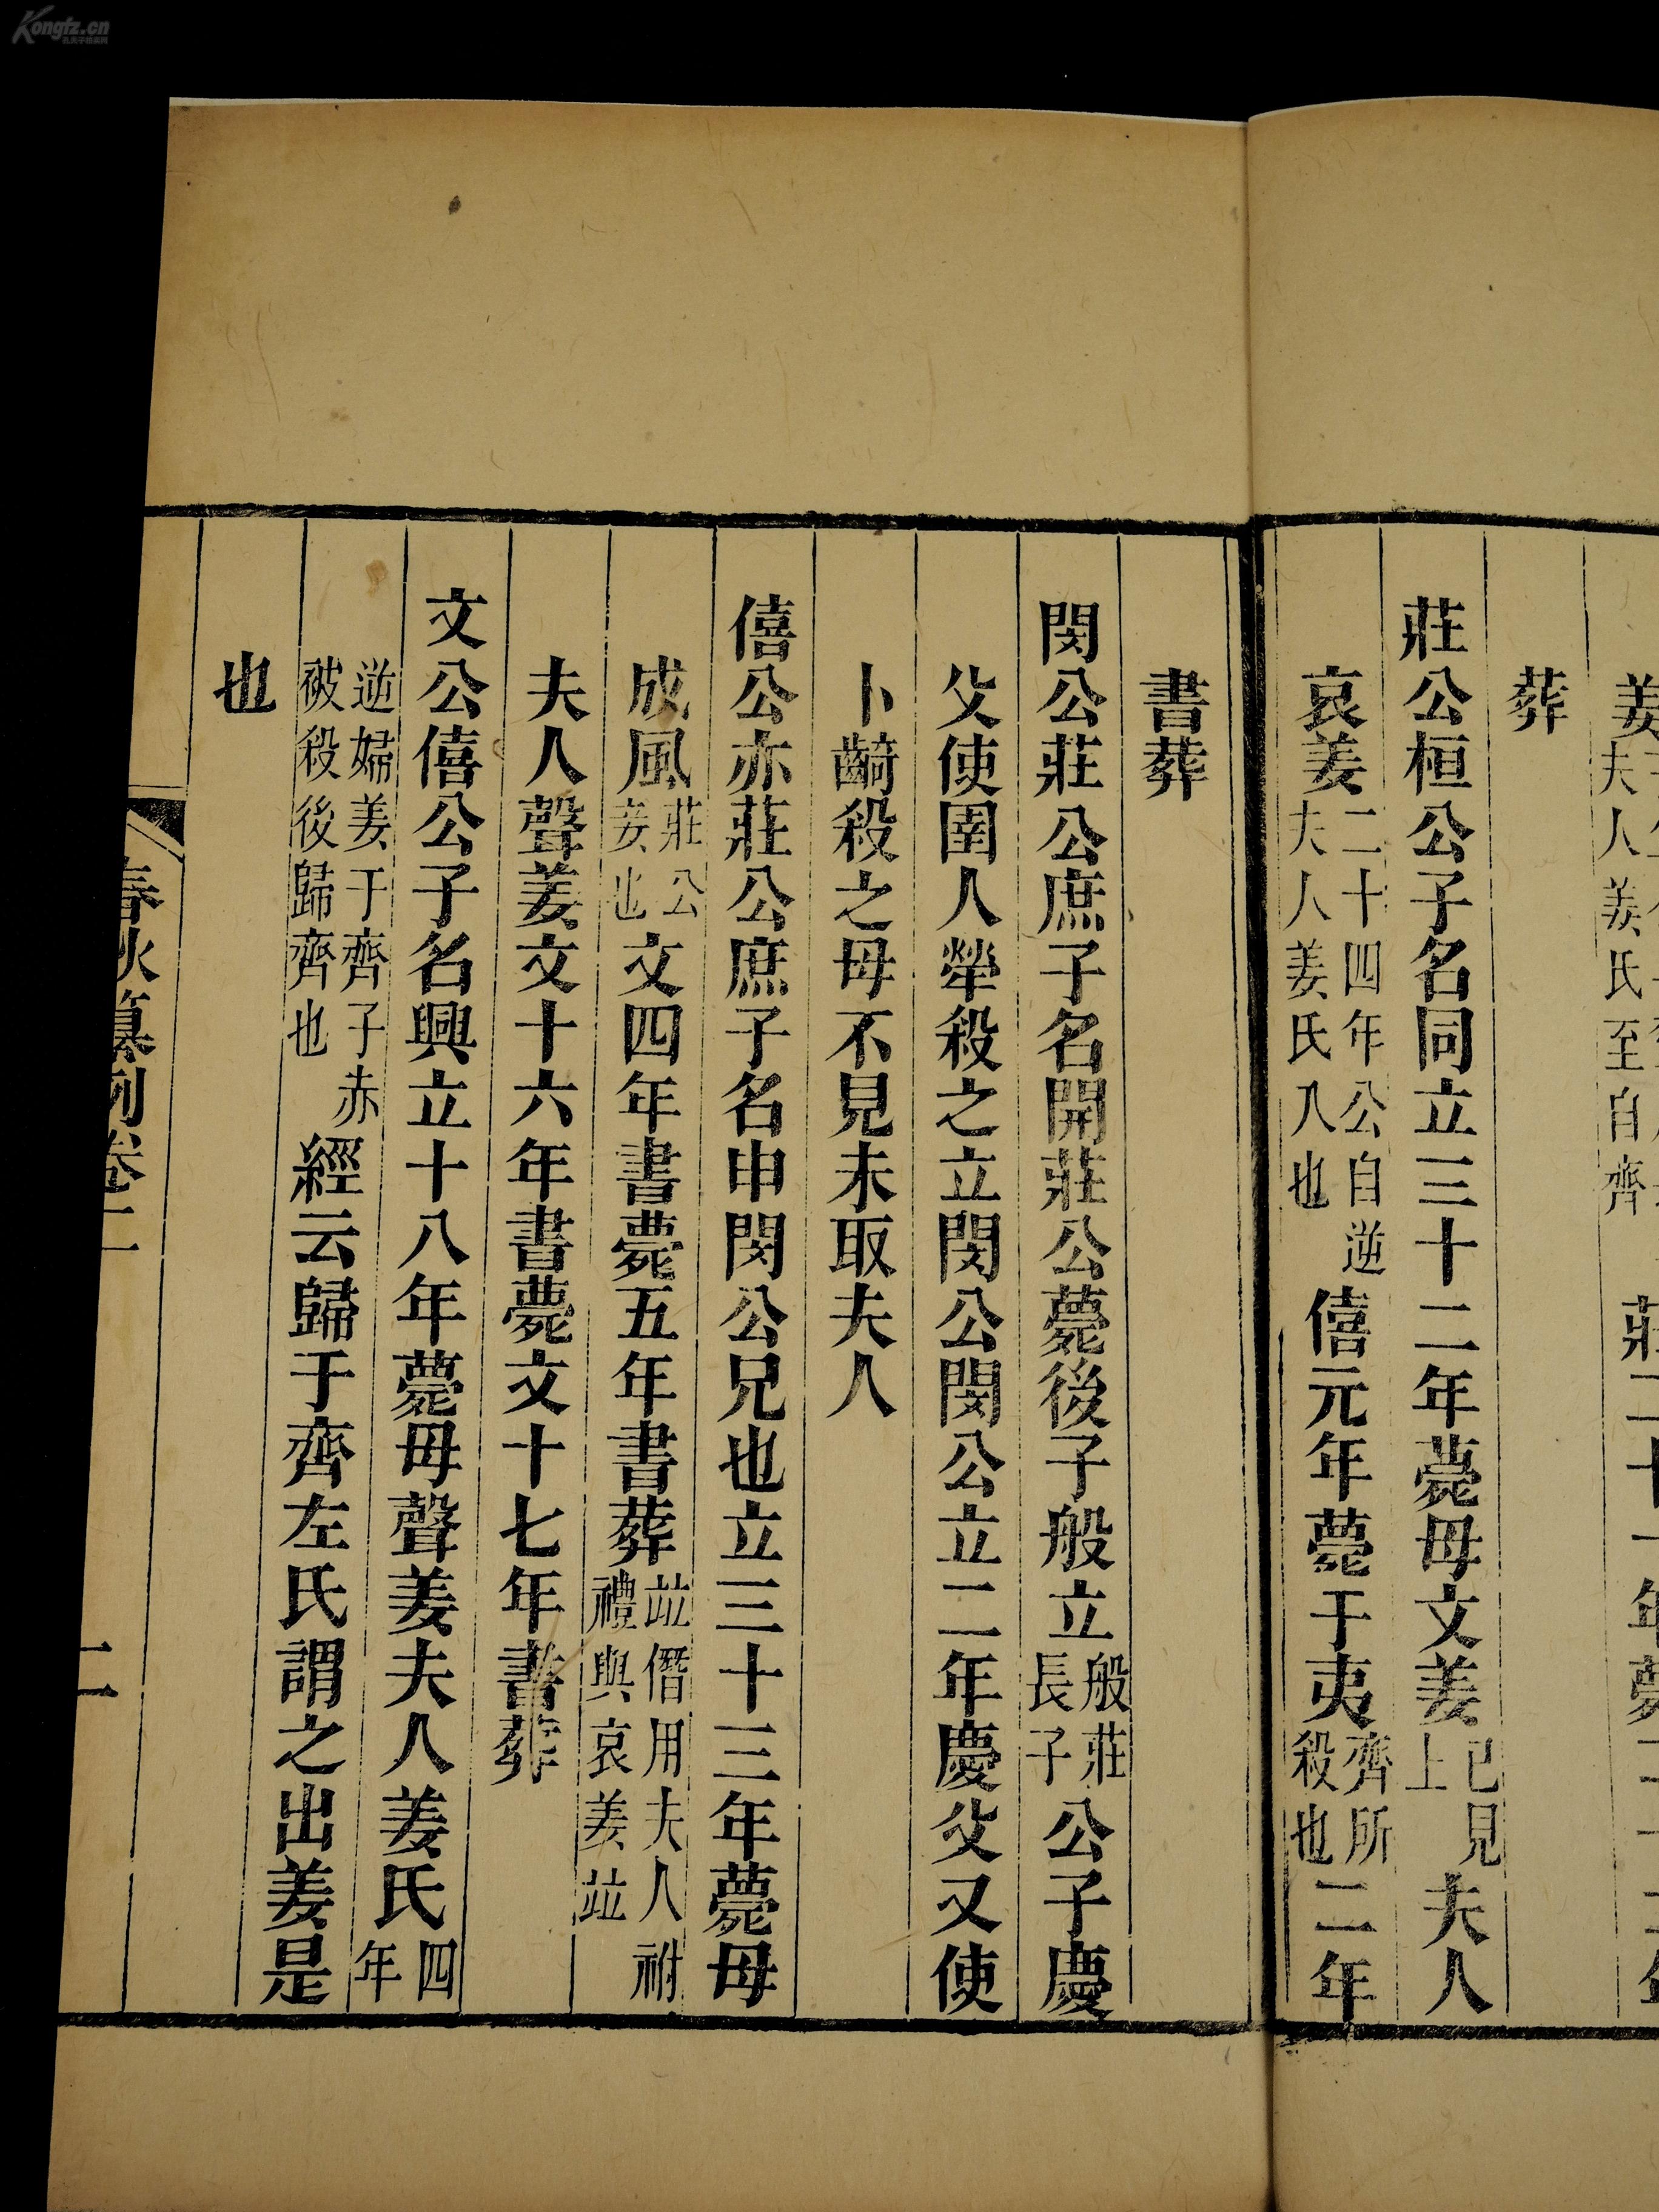 姜
夫人姜氏至自齊
葬
莊公桓公子名同立三十二年薨母文姜已見上夫人
哀姜二十四年公自逆夫人姜氏入也僖元年薨于夷齊所殺也二年
書葬
閔公莊公庶子名開莊公薨後子般立般莊長子公子慶
父使圉人犖殺之立閔公閔公立二年慶父又使
卜齮殺之母不見未取夫人
僖公亦莊公庶子名申閔公兄也立三十三年薨母
成風莊公妾也文四年書薨五年書葬竝僭用夫人祔禮與哀姜竝
夫人聲姜文十六年書薨文十七年書葬
文公僖公子名興立十八年薨母聲姜夫人姜氏四年
逆婦姜于齊子赤被殺後歸齊也經云歸于齊左氏謂之出姜是
也
春秋纂例卷二
二
Kongfz.cn